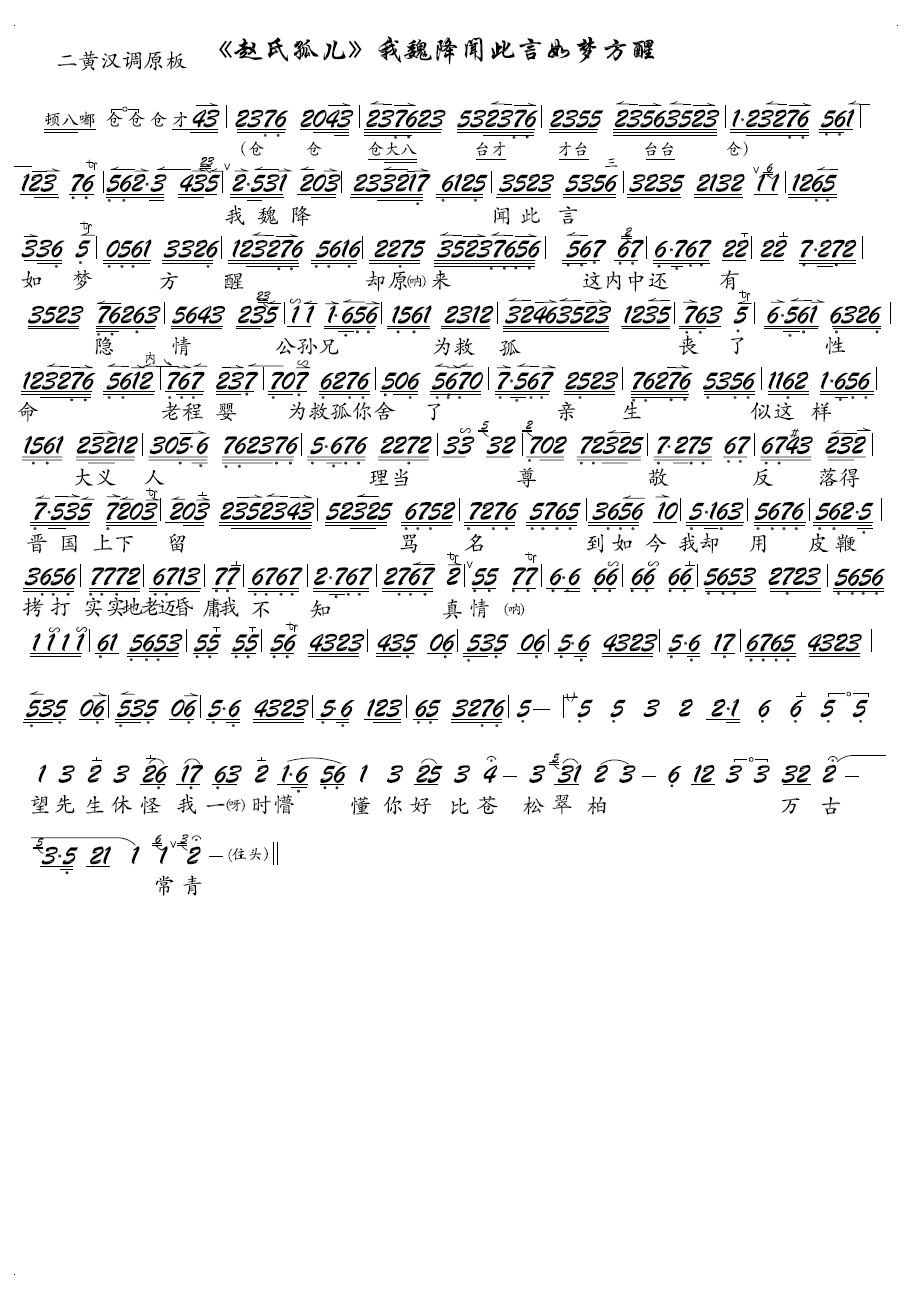 《赵氏孤儿》我魏降闻此言如梦方醒
二黄汉调原板
顿八嘟 仓仓仓才43|2376 2043|237623 532376|2355 23563523|1·23276 561|
(仓 仓 仓大八 台才 才台 台台 仓)
123 76|562·3 435|2·531 203|233217 6125|3523 5356|3235 2132 11|1265
我魏降 闻此言
336 5|0561 3326|123276 5616|2275 35237656|567 67|6·767 22|22 7·272|
如梦 方醒 却原(呐)来 这内中还有
3523 76263|5643 235|11 1·656|1561 2312|32463523 1235|763 5|6·561 6326|
隐情 公孙兄 为救孤 丧了性
内
123276 5612|767 237|707 6276|506 5670|7·567 2523|76276 5356|1162 1·656|
命 老程婴 为救孤你舍了 亲生 似这样
1561 23212|305·6 762376|5·676 2272|33 32|702 72325|7·275 67|6743 232|
大义人 理当 尊 敬 反 落得
7·535 7203|203 2352343|52325 6752|7276 5765|3656 10|5·163|5676|562·5|
晋国上下留 骂名 到如今我却用皮鞭
3656|7772|6713|77|6767|2·767|2767 2|55 77|6·6 66|66 66|5653 2723|5656
拷打实实地老迈昏庸我不知 真情(呐)
1111|61 5653|55 55|56 4323|435 06|535 06|5·6 4323|5·6 17|6765 4323|
535 06|535 06|5·6 4323|5·6 123|65 3276|5—|サ5 5 3 2 2·1 6 6 5 5
1 3 2 3 26 17 63 2 1·6 56 1 3 25 3 4— 3 31 2 3— 6 12 3 3 32 2—
望先生休怪我一(呀)时懵 懂你好比苍松翠柏 万古
3·5 21 1 1 2—(住头)‖
常青